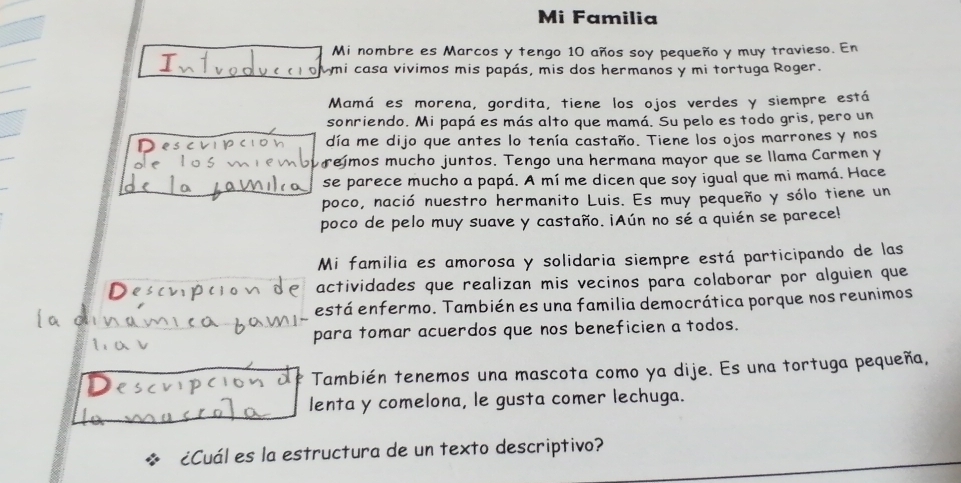 Mi Familia
Introducción
Mi nombre es Marcos y tengo 10 años soy pequeño y muy travieso. En
mi casa vivimos mis papás, mis dos hermanos y mi tortuga Roger.
Descripción
de los miembros
de la familia
Mamá es morena, gordita, tiene los ojos verdes y siempre está
sonriendo. Mi papá es más alto que mamá. Su pelo es todo gris, pero un
día me dijo que antes lo tenía castaño. Tiene los ojos marrones y nos
reímos mucho juntos. Tengo una hermana mayor que se llama Carmen y
se parece mucho a papá. A mí me dicen que soy igual que mi mamá. Hace
poco, nació nuestro hermanito Luis. Es muy pequeño y sólo tiene un
poco de pelo muy suave y castaño. ¡Aún no sé a quién se parece!
Descripción de
la dinámica fami-
liar
Mi familia es amorosa y solidaria siempre está participando de las
actividades que realizan mis vecinos para colaborar por alguien que
está enfermo. También es una familia democrática porque nos reunimos
para tomar acuerdos que nos beneficien a todos.
Descripción de
la mascota
También tenemos una mascota como ya dije. Es una tortuga pequeña,
lenta y comelona, le gusta comer lechuga.
❖ ¿Cuál es la estructura de un texto descriptivo?